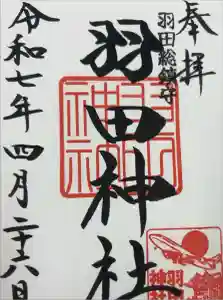 奉拝
羽田総鎮守
羽田神社
令和七年四月二十八日
羽田神社